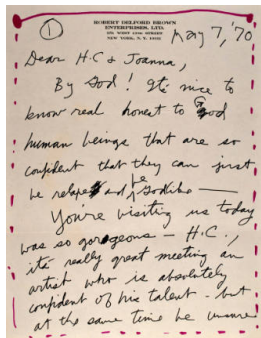 ①
ROBERT DELFORD BROWN
ENTERPRISES, LTD.
NEW YORK, N. Y. 10011
May 7, '70
Dear H.C & Joanna,
By God! It's nice to
know real honest to God
human beings that are so
confident that they can just
be relaxed and be Godlike —
You're visiting us today
was so gorgeous — H.C.,
it's really great meeting an
artist who is absolutely
confident of his talent - but
at the same time be unsure